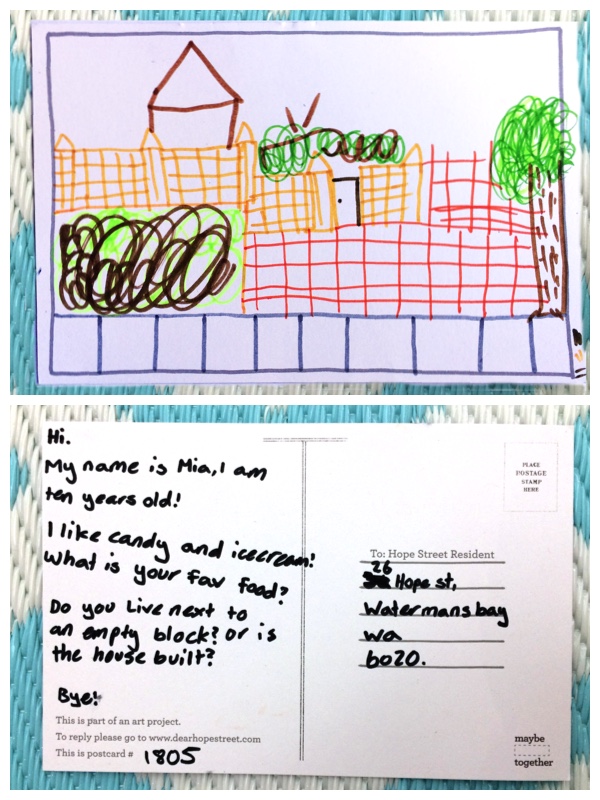 Hi.
My name is Mia, I am
ten years old!
I like candy and icecream!
What is your fav food?
Do you Live next to
an empty block? or is
the house built?
Bye!
This is part of an art project.
To reply please go to www.dearhopestreet.com
This is postcard # 1805
PLACE
POSTAGE
STAMP
HERE
To: Hope Street Resident
26
Hope st,
Watermans bay
wa
6020.
maybe
together